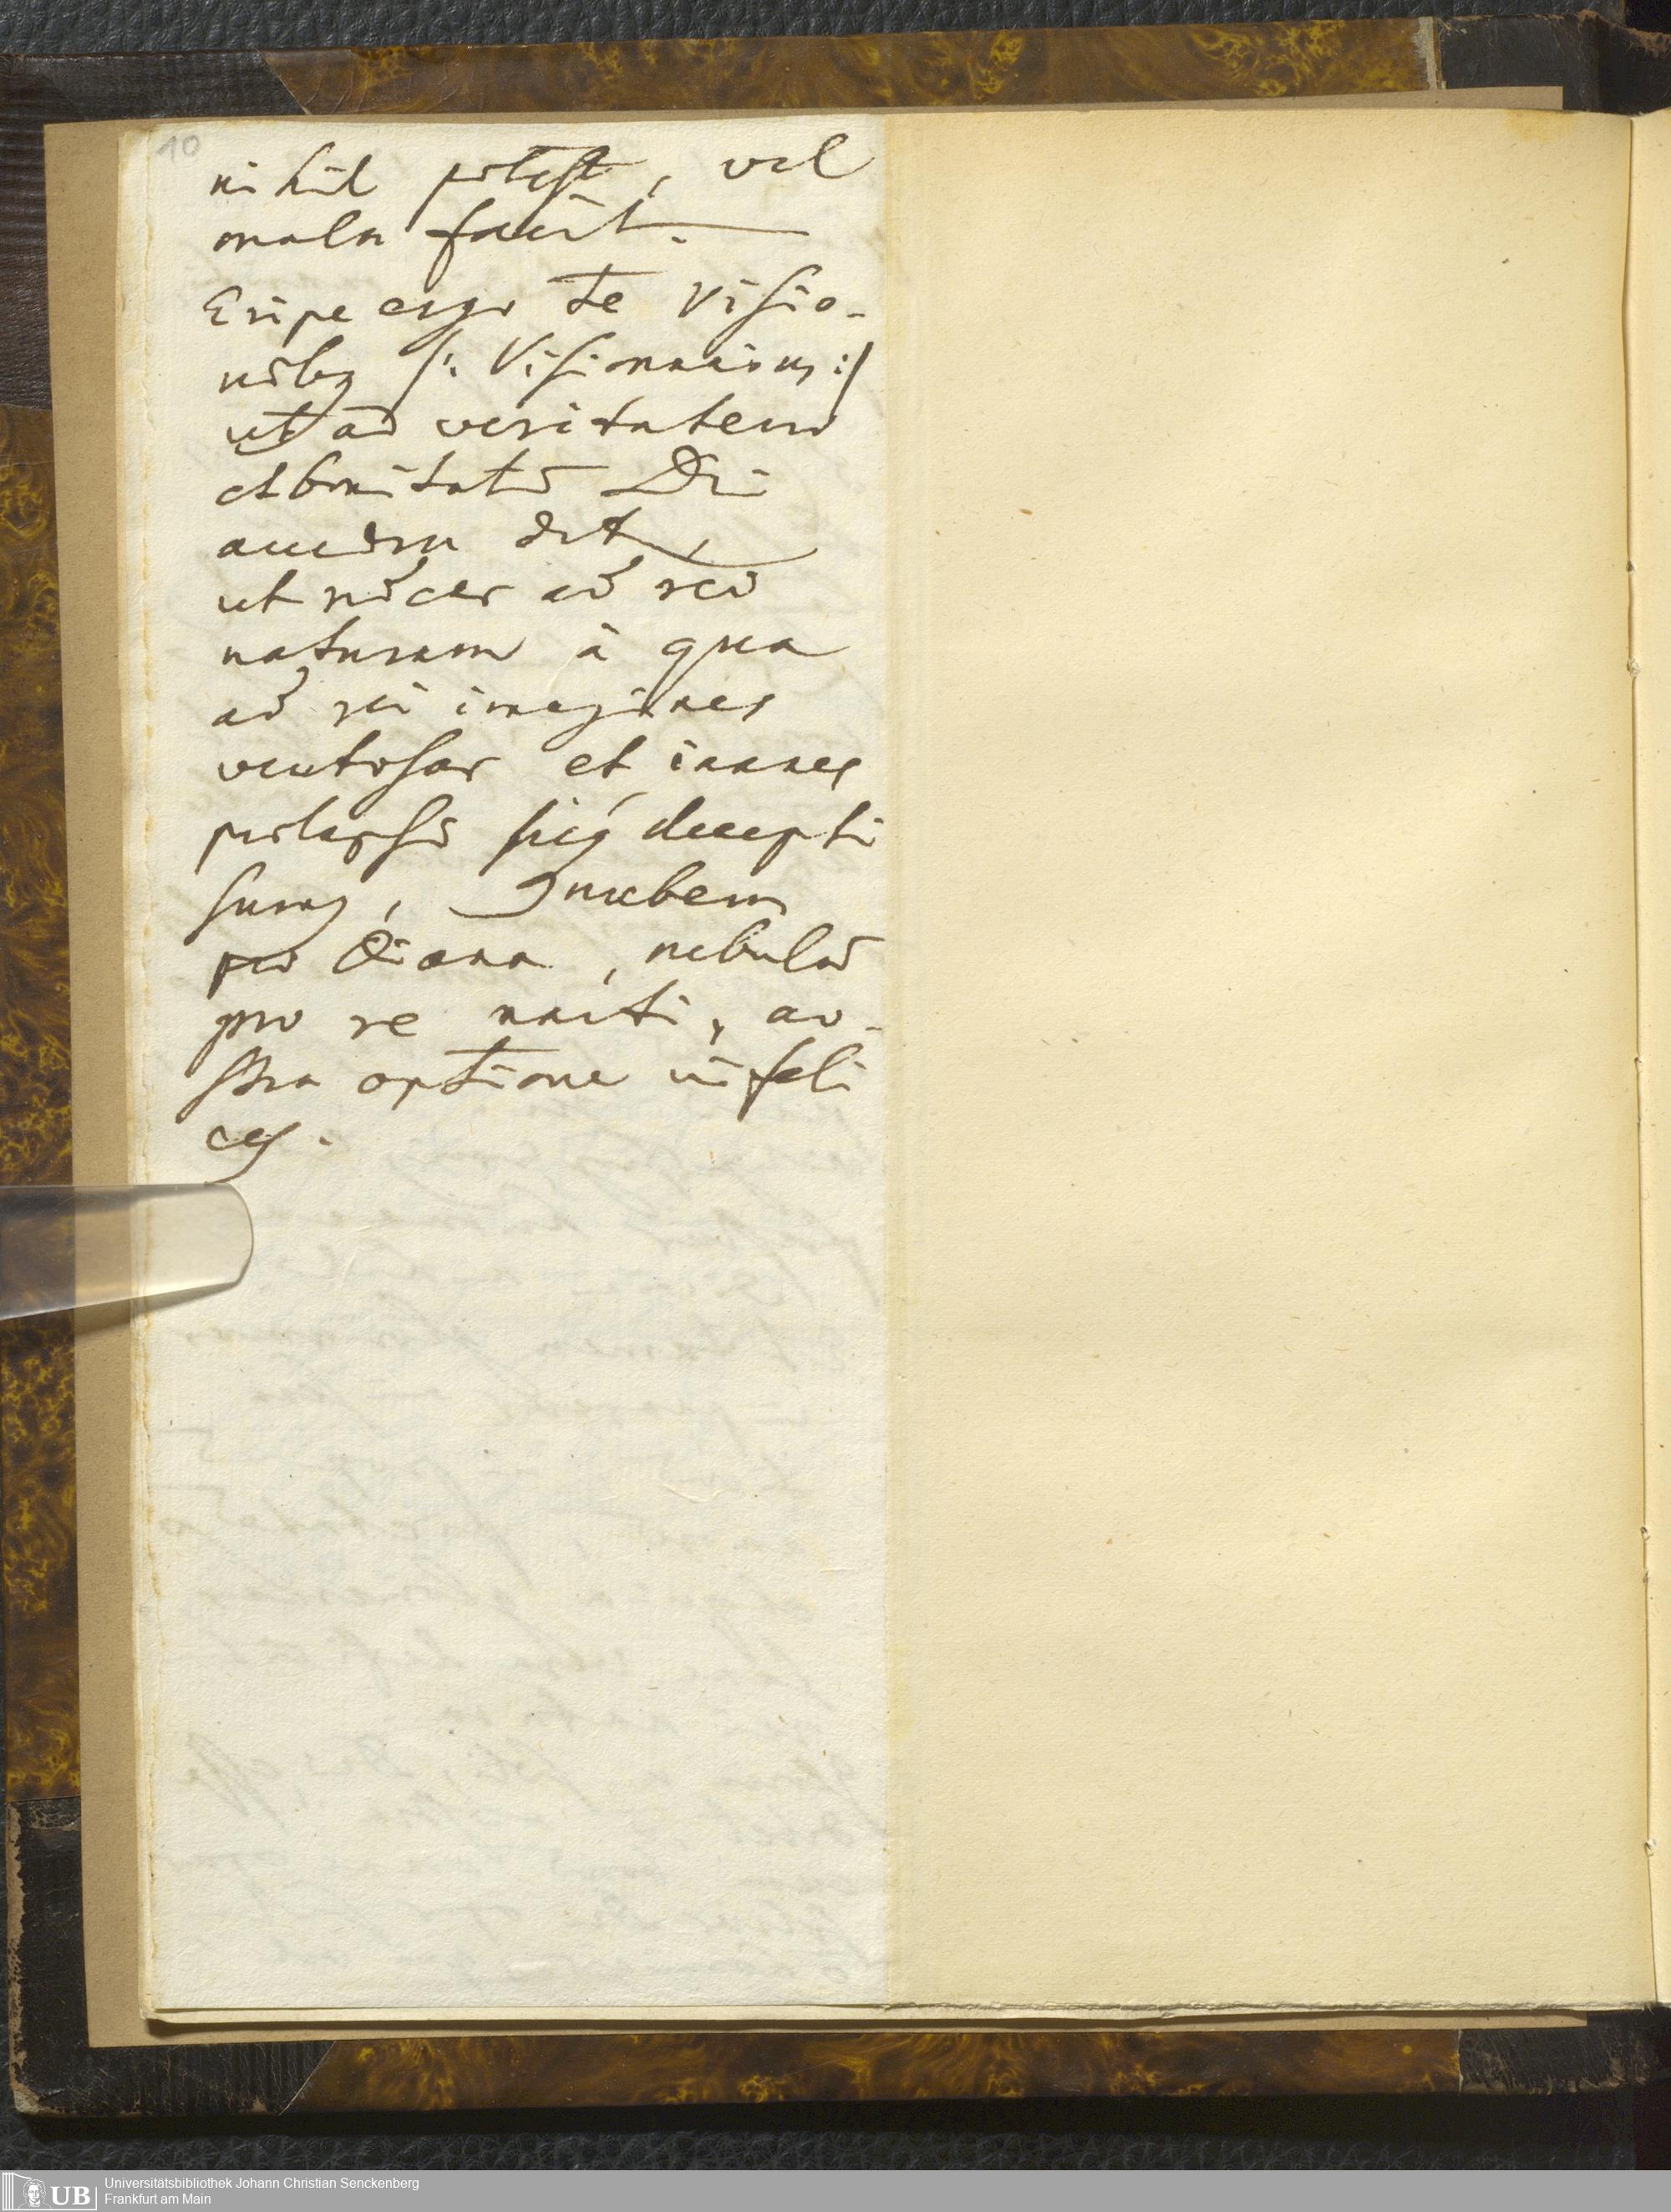 10
nihil potest, vel
mala facit.
Eripe ergo te Visio-
nibq /: Visionarius :/
ut ad veritatem
et bonitatē Dei
accedere
ut ad rei
naturam à qua
ad rei imagines
ventosas et inanes
prolapsi sicq decepti
sumq, nubem
pro Diana, nebulā
pro re nacti, no-
stra optione infeli
ces.
UB Universitätsbibliothek Johann Christian Senckenberg
Frankfurt am Main